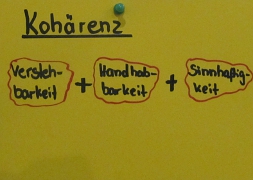 Kohärenz
Versteh- + Handhab- + Sinnhaftig-
barkeit barkeit keit